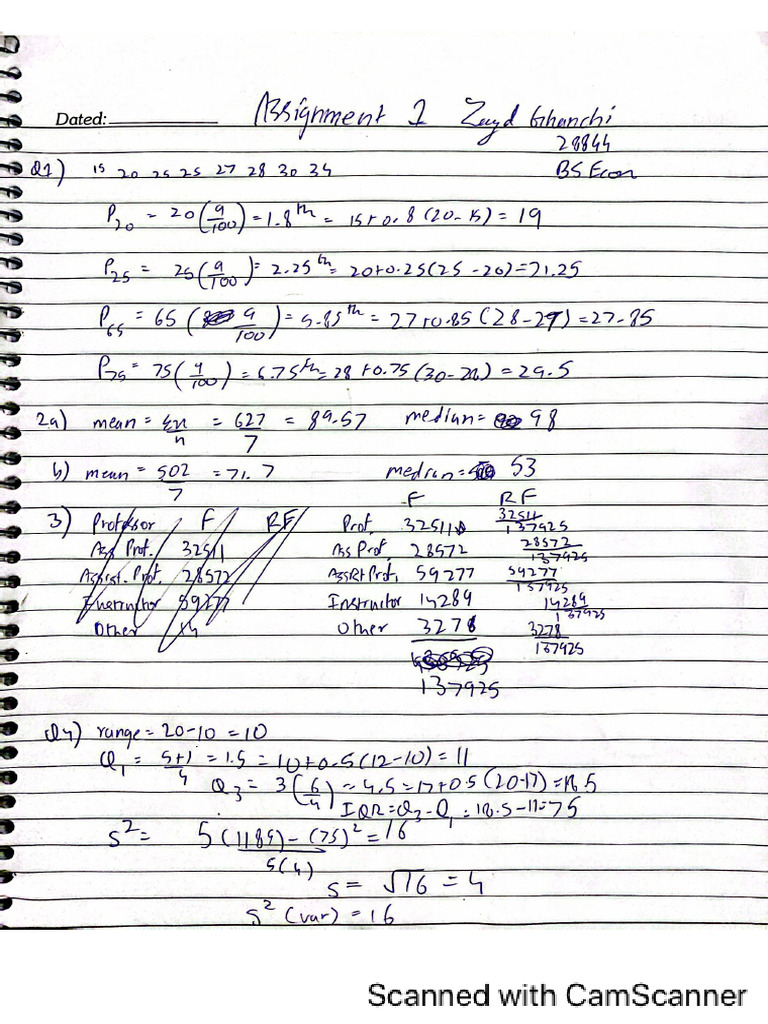 Dated:
Assignment 1 Zayd Ghanchi
28844
BS Econ
Q1) 15 20 25 25 27 28 30 34
P20 = 20(9/100) = 1.8th = 15+0.8(20-15) = 19
P25 = 25(9/100) = 2.25th = 20+0.25(25-20) = 21.25
P65 = 65(9/100) = 5.85th = 27+0.85(28-27) = 27.85
P75 = 75(9/100) = 6.75th = 28+0.75(30-28) = 29.5
2a) mean = Σx/n = 627/7 = 89.57 median = 98
b) mean = 502/7 = 71.7 median = 53
3) Professor F RF
Ass Prof. 32511
Assist. Prof. 28572
Instructor 59277
Other 14
F RF
Prof. 32511 32511/137925
Ass Prof. 28572 28572/137925
AssistProf. 59277 59277/137925
Instructor 14289 14289/137925
Other 3278 3278/137925
137925
Q4) range = 20-10 = 10
Q1 = 5+1/4 = 1.5 = 10+0.5(12-10) = 11
Q3 = 3(6/4) = 4.5 = 17+0.5(20-17) = 18.5
IQR = Q3-Q1 = 18.5-11 = 7.5
s² = 5(1189)-(75)²/5(4) = 16
s = √16 = 4
s² (var) = 16
Scanned with CamScanner